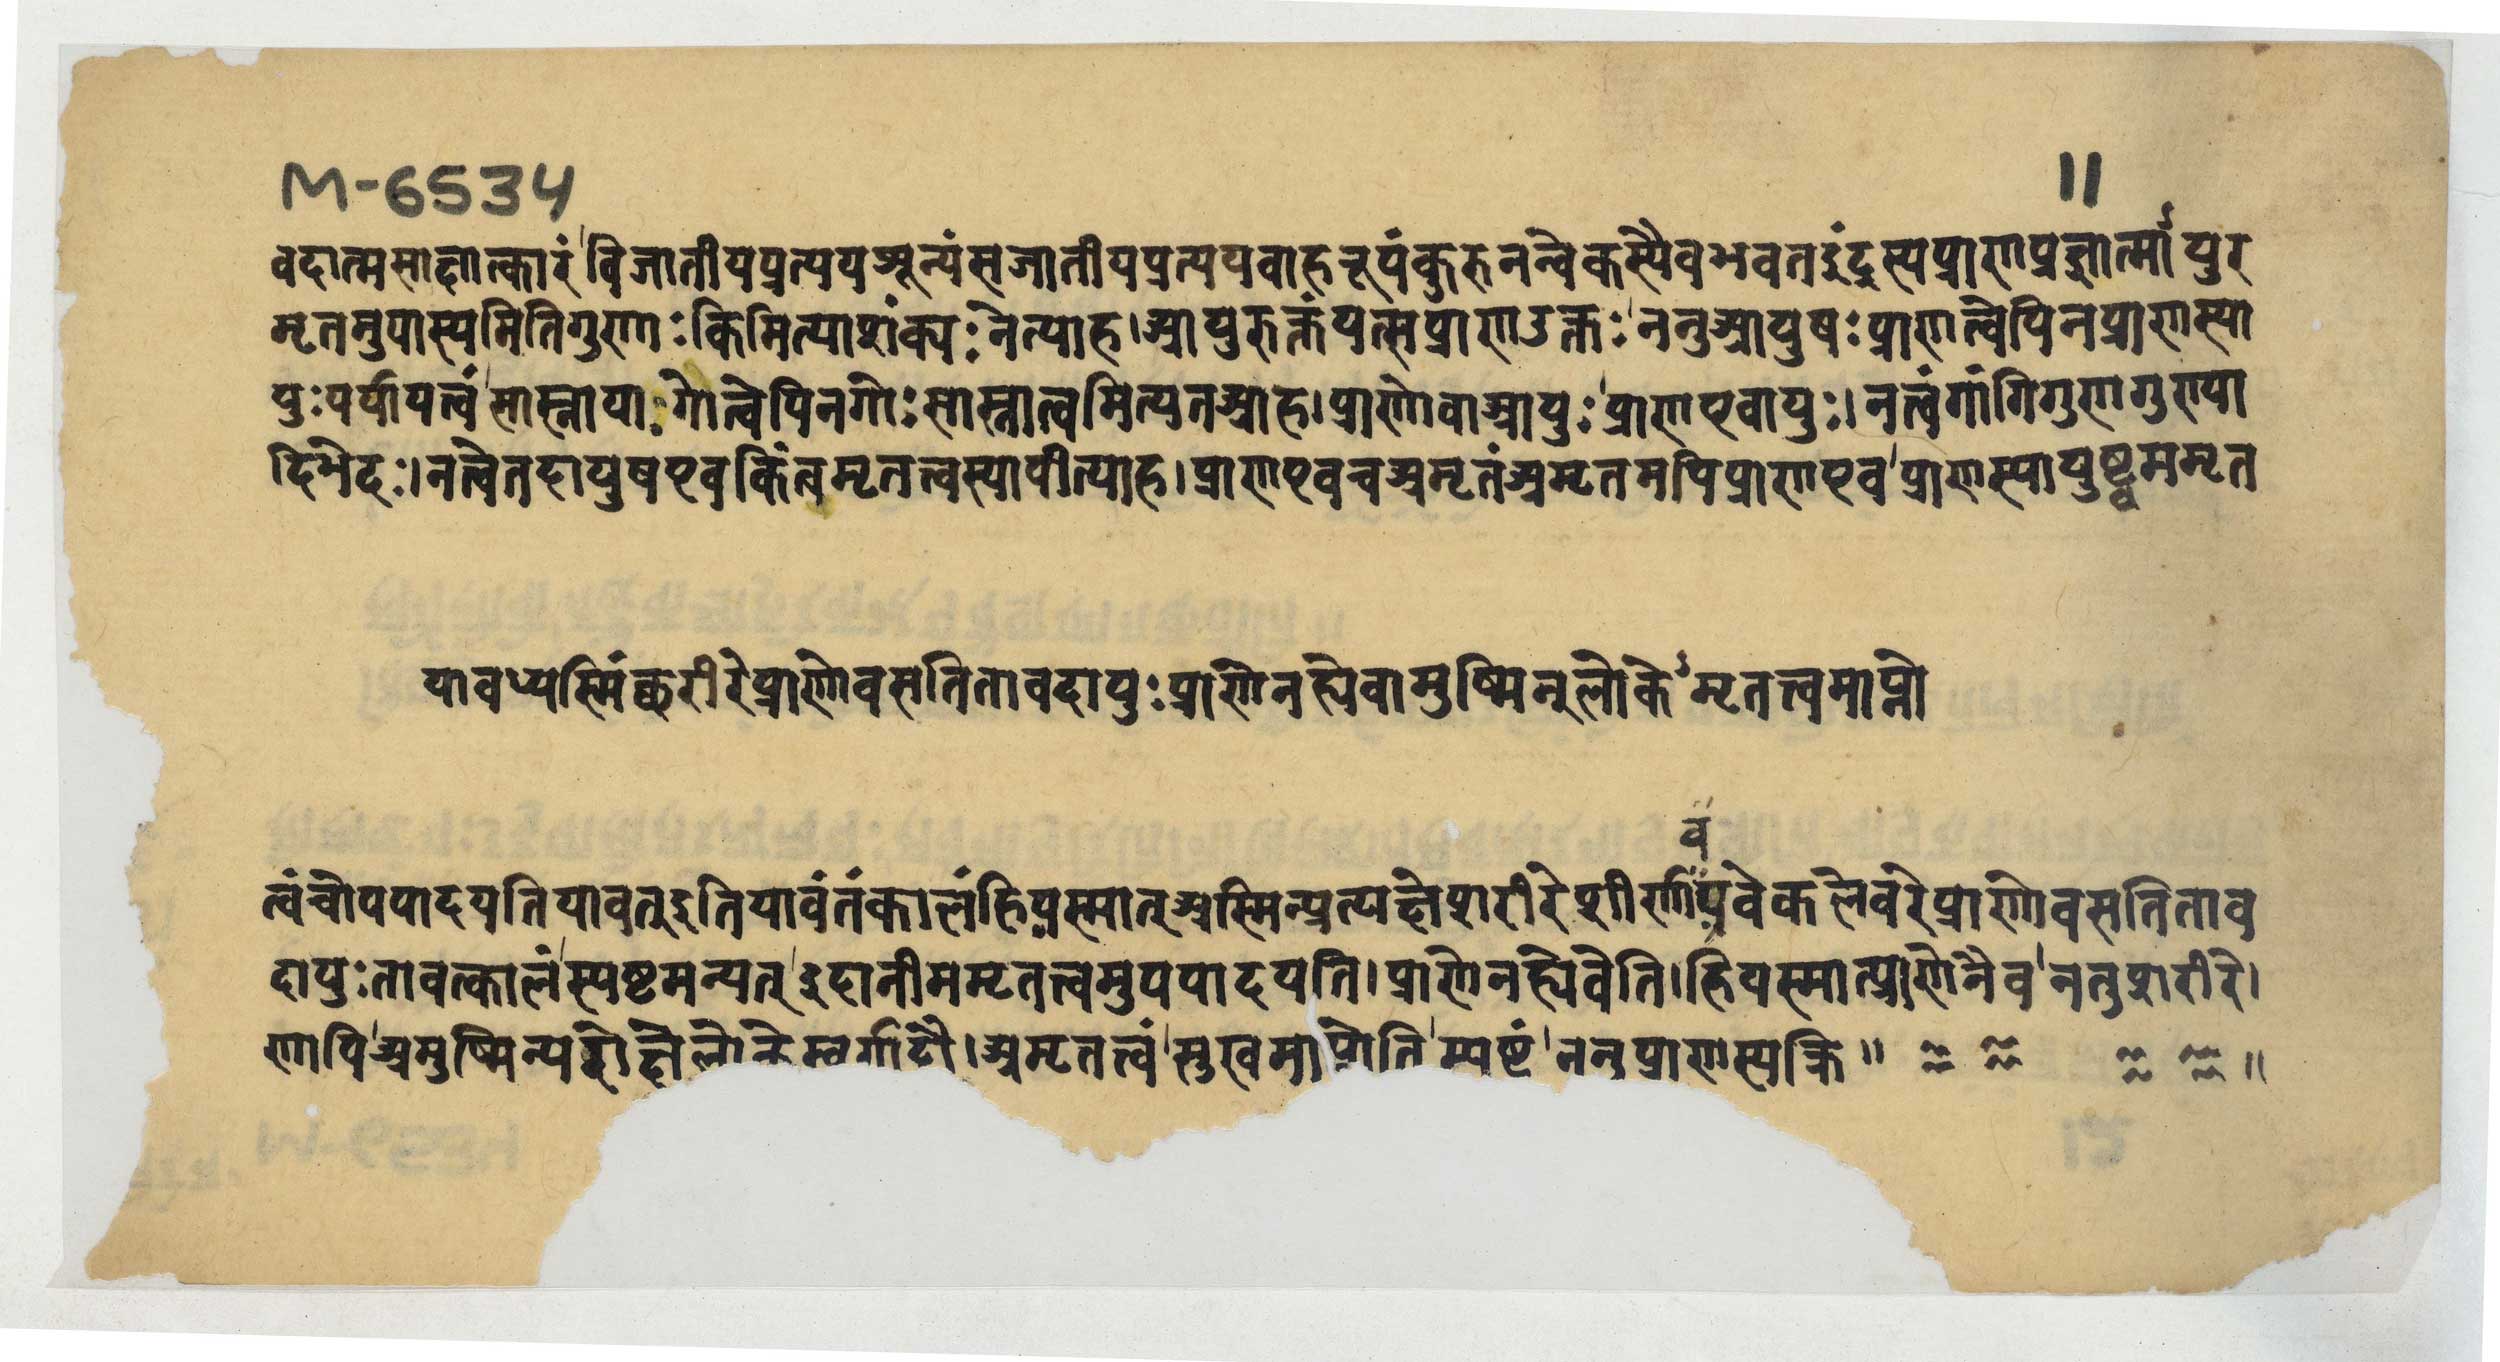 M-6534
11
वदात्मसाक्षात्कारं विजातीयप्रत्ययशून्यंसजातीयप्रत्ययवाहरूपंकुरुनन्वेकस्यैवभवतइंद्रस्यप्राणप्रज्ञात्मा युर
मृतमुपास्यमितिगुणाः किमित्याशंक्यः नेत्याह।आयुरुक्तंयत्सप्राणउक्तः ननुआयुषः प्राणत्वेपिनप्राणस्या
युःपर्यायत्वं सास्नाया गोत्वेपिनगोः सास्नात्वमित्यतआह। प्राणोवाआयुः प्राणएवायुः। नत्वंगांगिगुणगुण्या
दिभेदः। नत्वेतदायुषएवकिंत्वमृतत्वस्यापीत्याह। प्राणएवचअमृतंअमृतमपिप्राणएव प्राणस्यायुष्ट्वममृत
यावध्यस्मिंच्छरीरेप्राणोवसतितावदायुः प्राणेनह्येवामुष्मिन्लोकेऽमृतत्वमाप्नो
व
त्वंचोपपादयतियावत्इतियावंतंकालंहियस्मात्अस्मिन्प्रत्यक्षेशरीरेशीर्णेपवेकलेवरेप्राणोवसतिताव
दायुः तावत्कालं स्पष्टमन्यत् इदानीममृतत्वमुपपादयति। प्राणेनह्येवेति। हियस्मात्प्राणेनैव नतुशरीरे।
णापि अमुष्मिन्परोक्षेलोकेस्वर्गादौ। अमृतत्वं सुखमाप्नोति स्पष्टं ननुप्राणस्यकि॥ ॥